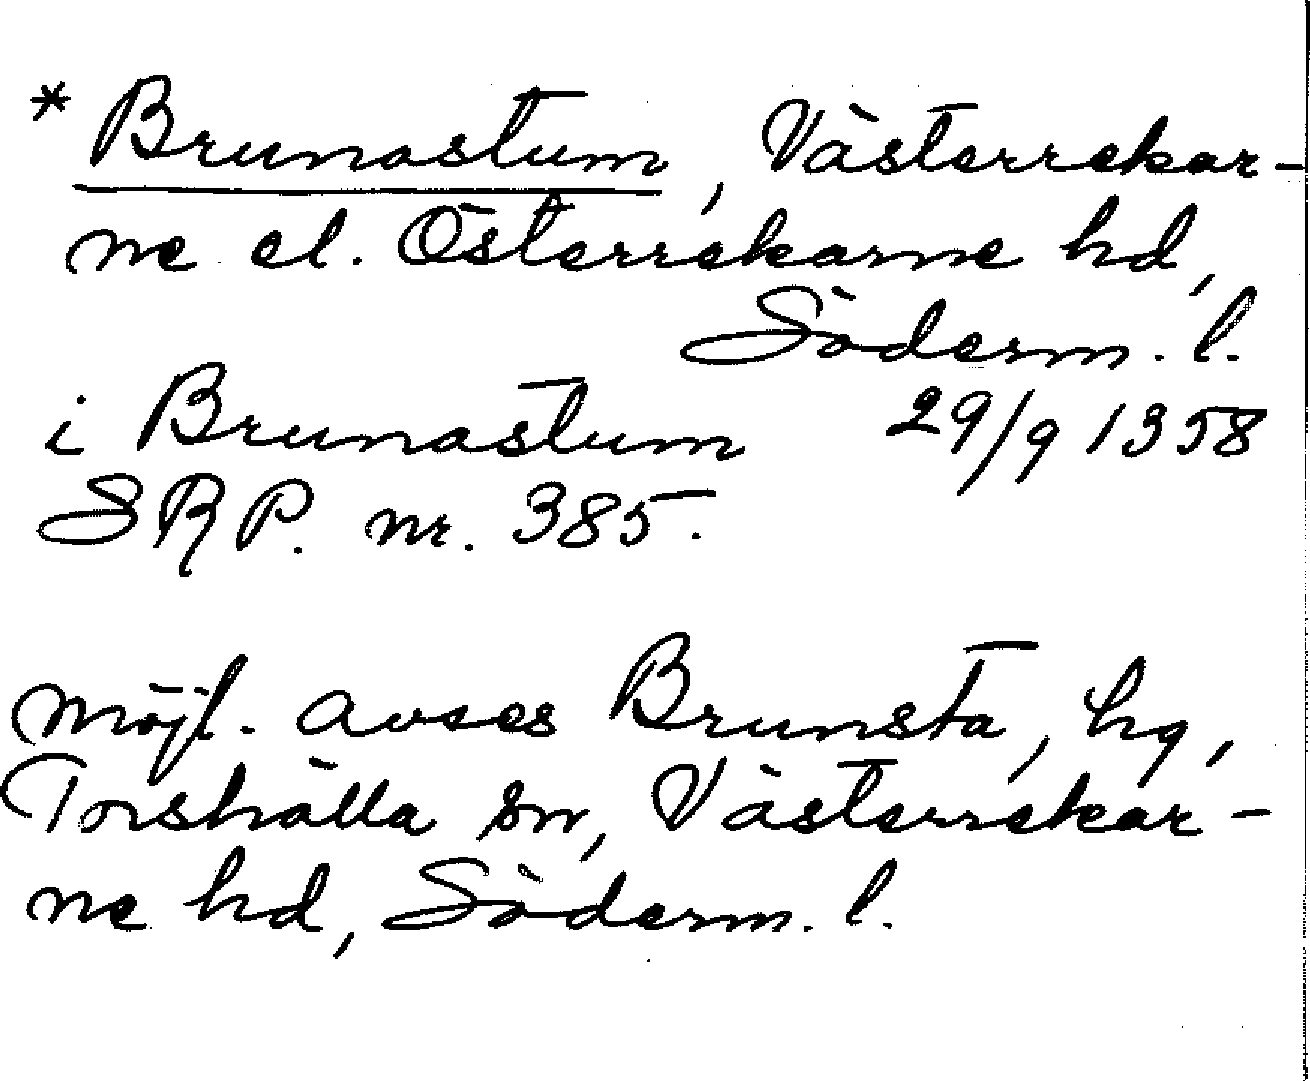 * Brunastum, Västerrekar-
ne el. Österrekarne hd,
Söderm. l.
i Brunastum 29/9 1358
SRP. nr. 385.
Möjl. avses Brunsta, hg,
Torshälla sn, Västerrekar-
ne hd, Söderm. l.